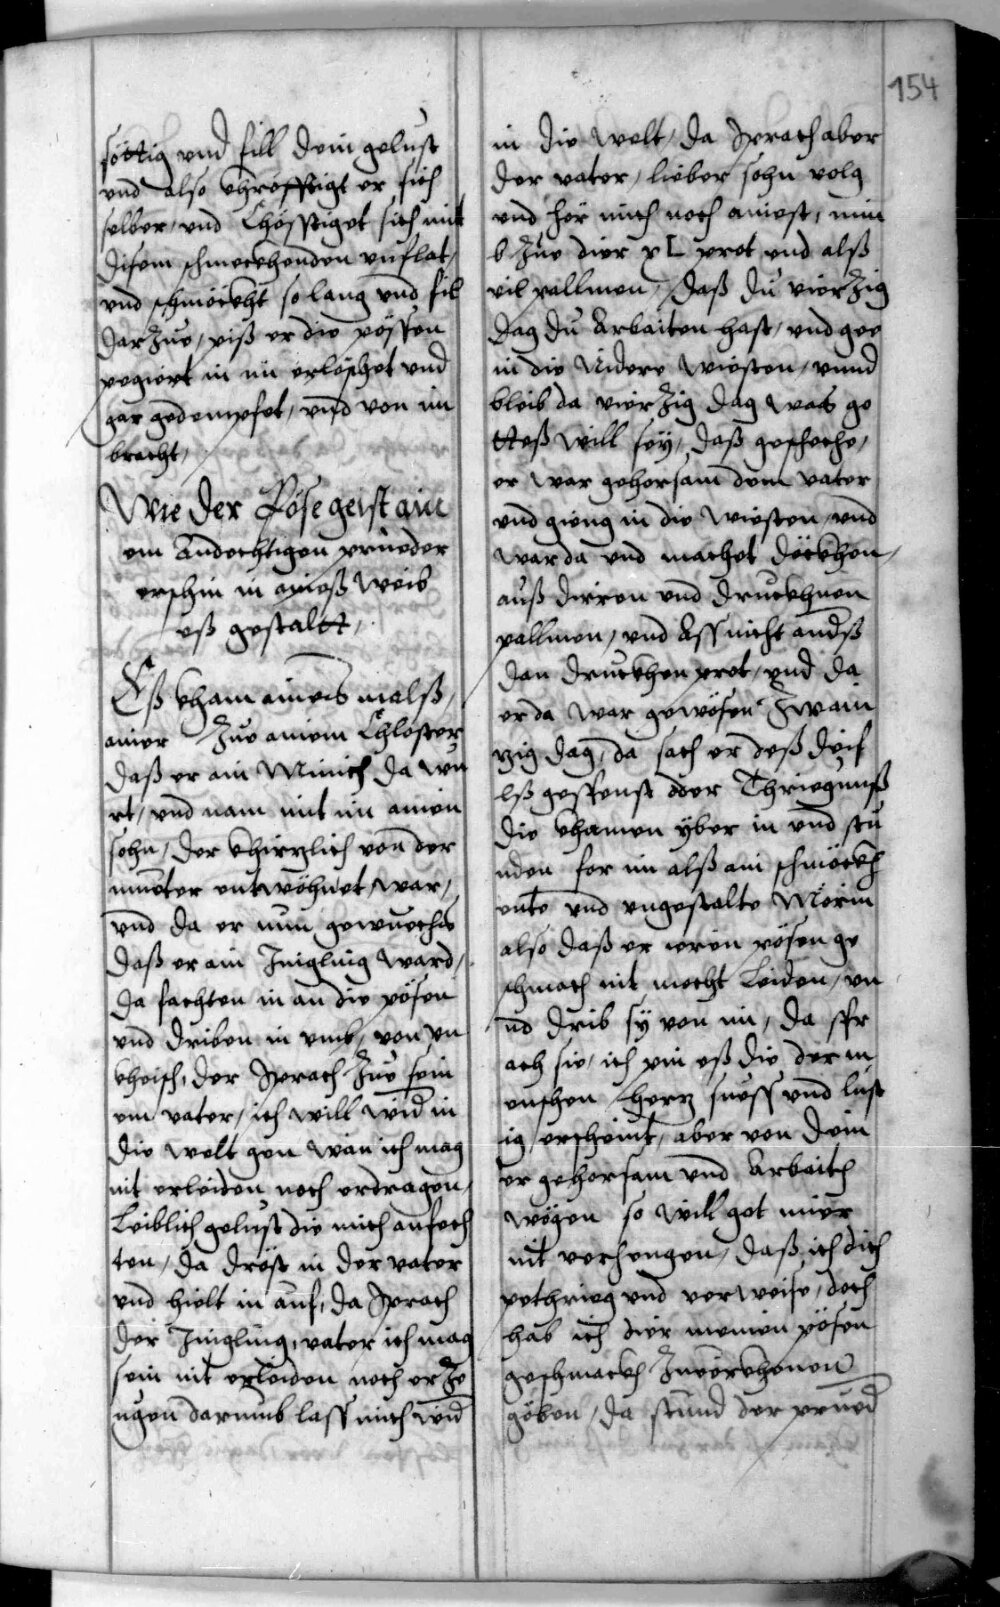 154
söttig vnd fill dein gelust
vnd also chröfftigt er sich
selber, vnd Chöfftiget sich mit
disem schmeckhenden vnflat,
vnd schmöckht so lang vnd fil
darzue, piß er die pössen
pegiert in im erlöschet vnd
gar gedempfet, vnd von im
bracht,
Wie der Pöse geist ain
em Andechtigen prueder
erschin in aineß Weib
eß gestaltt,
Eß kham aineis malß,
ainer zue ainem Chloster
daß er ain Minich da wu
rt, vnd nam mit im ainen
sohn, der khirzlich von der
mueter entwöhnet war,
vnd da er nun gewuechs
daß er ain Jingling ward,
da fachten in an die pösen
vnd driben in vmb, von vn
kheisch, der sprach zue sein
em vater, ich will wid in
die welt gen wan ich mag
nit erleiden noch erdragen,
Leiblich gelust die mich anfech
ten, da dröst in der vater
vnd hielt in auf, da sprach
der Jingling, vater ich mag
sein nit erleiden noch erze
ugen darumb lass mich wid
in die welt, da sprach aber
der vater, lieber sohn volg
vnd her mich noch ainest, nim
b zue dier xL prot vnd alß
vil pallmen, daß du vierzig
dag du Arbaiten hast, vnd gee
in die Nidere wiesten, vnnd
bleib da vierzig dag was go
tteß will sey, daß gescheche,
er war gehorsam dem vater
vnd gieng in die wiesten, vnd
war da vnd machet döckhen,
auß dirren vnd druckhnen
pallmen, vnd Ass nicht andß
dan druckhen prot, vnd da
er da war gewösen zwain
zig dag, da sach er deß deif
lß gespenst oder Thriegnuß
die khamen yber in vnd stu
nden for im alß ain schmöckh
ente vnd vngestalte Mörin
also daß er iren pösen ge
schmach nit mocht Leiden, vn
nd drib sy von im, da spr
ach sie, ich pin eß die der m
enschen herz suess vnd lust
ig erscheint, aber von dein
er gehorsam vnd Arbaith
wögen so will got mier
nit verhengen, daß ich dich
pethrieg vnd verweise, doch
hab ich dier meinen pösen
geschmackh zuerkhenen
göben, da stund der prued